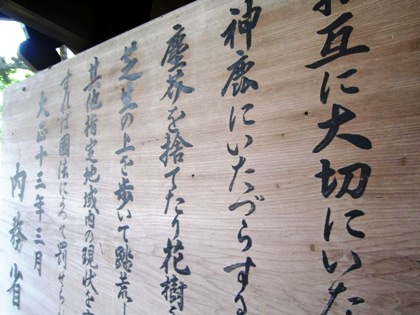 お互に大切にいた
神鹿にいたづらする
塵芥を捨てたり花樹を
芝生の上を歩いて踏荒し
其他指定地域内の現状を
すれば國法によつて罰せら
大正十三年三月
内務省